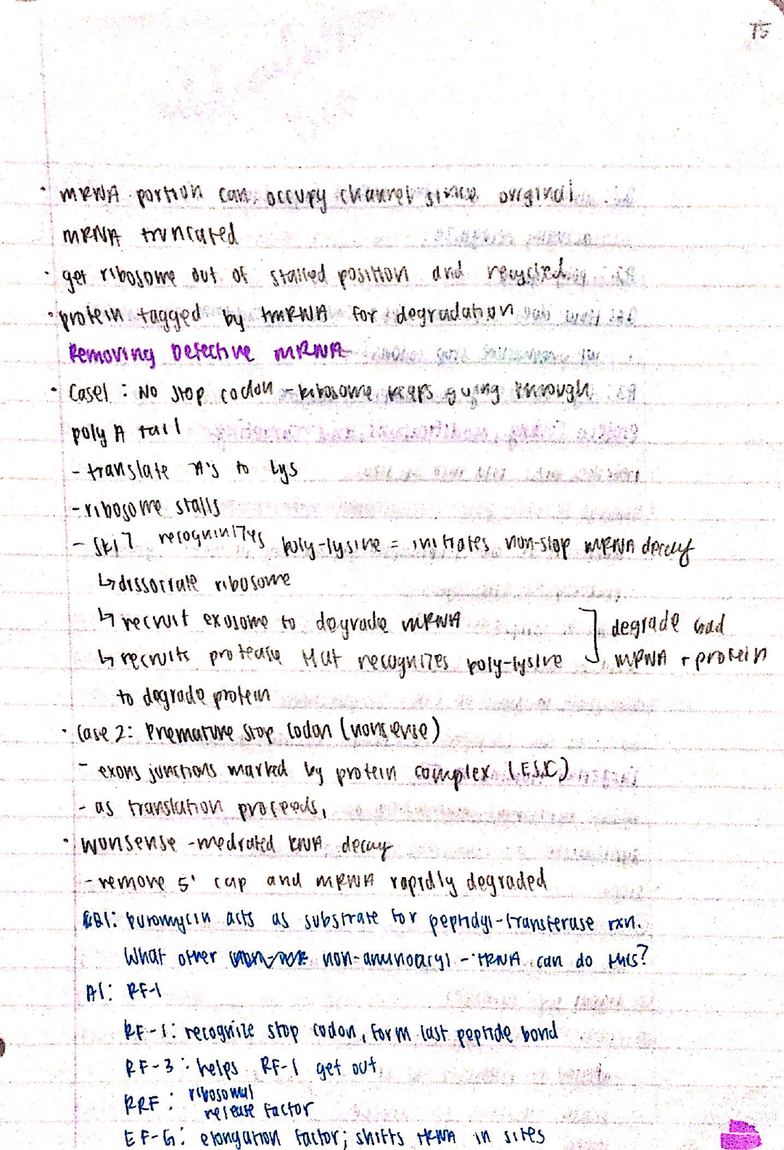 75
• mRNA portion can occupy channel since original
mRNA truncated
• get ribosome out of stalled position and recycled
• protein tagged by tmRNA for degradation
Removing Defective mRNA
• Case1: No stop codon - ribosome keeps going through
poly A tail
- translate A's to Lys
- ribosome stalls
- Ski7 recoginizes poly-lysine = initiates non-stop mRNA decay
↳ dissociate ribosome
↳ recruit exosome to degrade mRNA
↳ recruits protease that recognizes poly-lysine
to degrade protein
] degrade bad
mRNA + protein
• Case 2: Premature stop codon (nonsense)
- exons junctions marked by protein complex (EJC)
- as translation proceeds,
• Nonsense-mediated RNA decay
- remove 5' cap and mRNA rapidly degraded
puromycin acts as substrate for peptidyl-transferase rxn.
What other non-aminoacyl-tRNA can do this?
A1: RF-1
RF-1: recognize stop codon, form last peptide bond
RF-3: helps RF-1 get out
RRF: ribosomal
release factor
EF-G: elongation factor; shifts tRNA in sites